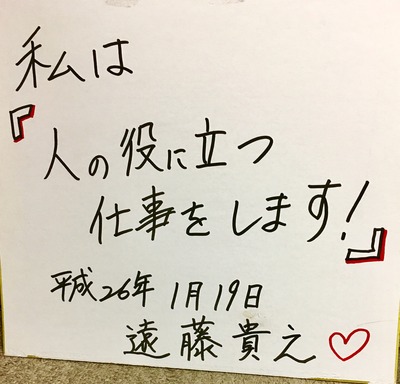 私は
『人の役に立つ
仕事をします!』
平成26年1月19日
遠藤貴え